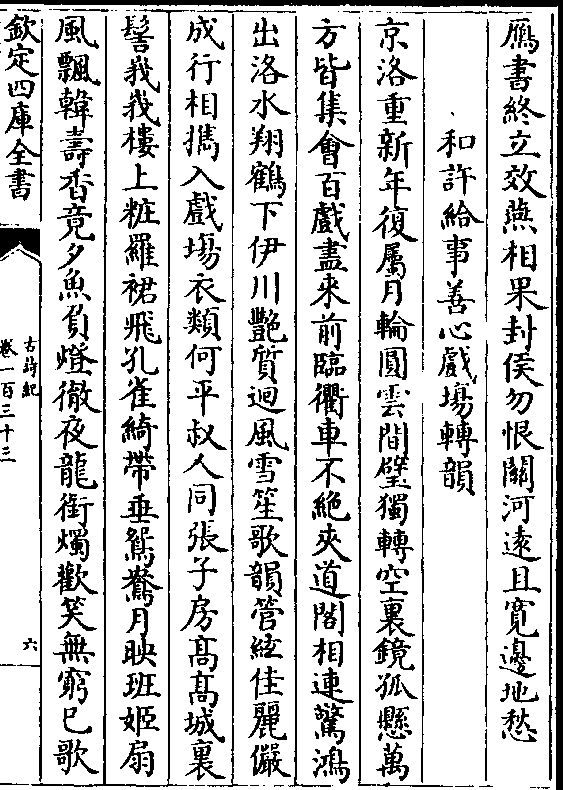 鴈書終立效燕相果封侯勿恨關河逺且寛邊地愁
和許給事善心戲塲轉韻
京洛重新年復屬月輪圓雲間璧獨轉空裏鏡孤懸萬
方皆集㑹百戲盡來前臨衢車不絶夾道閣相連驚鴻
出洛水翔鶴下伊川艷質迴風雪笙歌韻管絃佳麗儼
成行相攜入戲塲衣類何平叔人同張子房髙髙城裏
髻峩峩樓上粧羅裙飛孔雀綺帶垂鴛鴦月映班姬扇
風飄韓壽香竟夕魚負燈徹夜龍銜燭歡笑無窮已歌
欽定四庫全書
古詩紀
卷一百三十三
六